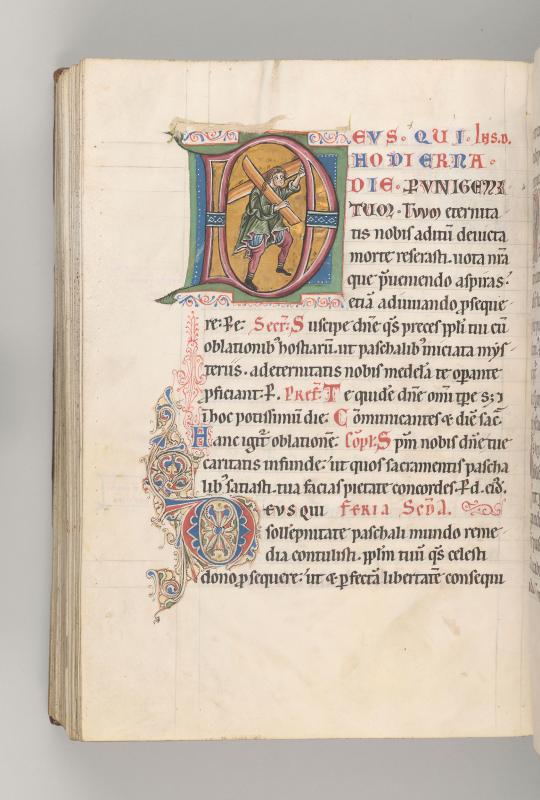 DEVS · QUI · hodierna
HODIERNA ·
DIE · P UNIGENI
TUM · Tuum eternita
tis nobis aditū deuicta
morte reserasti. uota nr̄a
que p̄ueniendo aspiras.
etiā adiuuando ꝓseque
re: Per Secr̄. Suscipe dn̄e qs̄ preces ppl̄i tui cū
oblationib; hostiarū. ut paschalib; iniciata mys
teriis. ad eternitatis nobis medelā te operante
ꝓficiant. P. Pref. Te quidē dn̄e om̄i tp̄e s;
ī hoc potissimū die. Cōmunicantes & diē sac̄
Hanc igit̄ oblationē. Cōpl. Spm̄ nobis dn̄e tue
caritatis infunde: ut quos sacramentis pascha
lib; satiasti. tua facias pietate concordes. P d. eiđ.
DEVS QUI FERIA SCDA.
sollēpnitate paschali mundo reme
dia contulisti. ppl̄m tuū qs̄ celesti
dono ꝓsequere: ut & ꝑfectā libertatē consequi